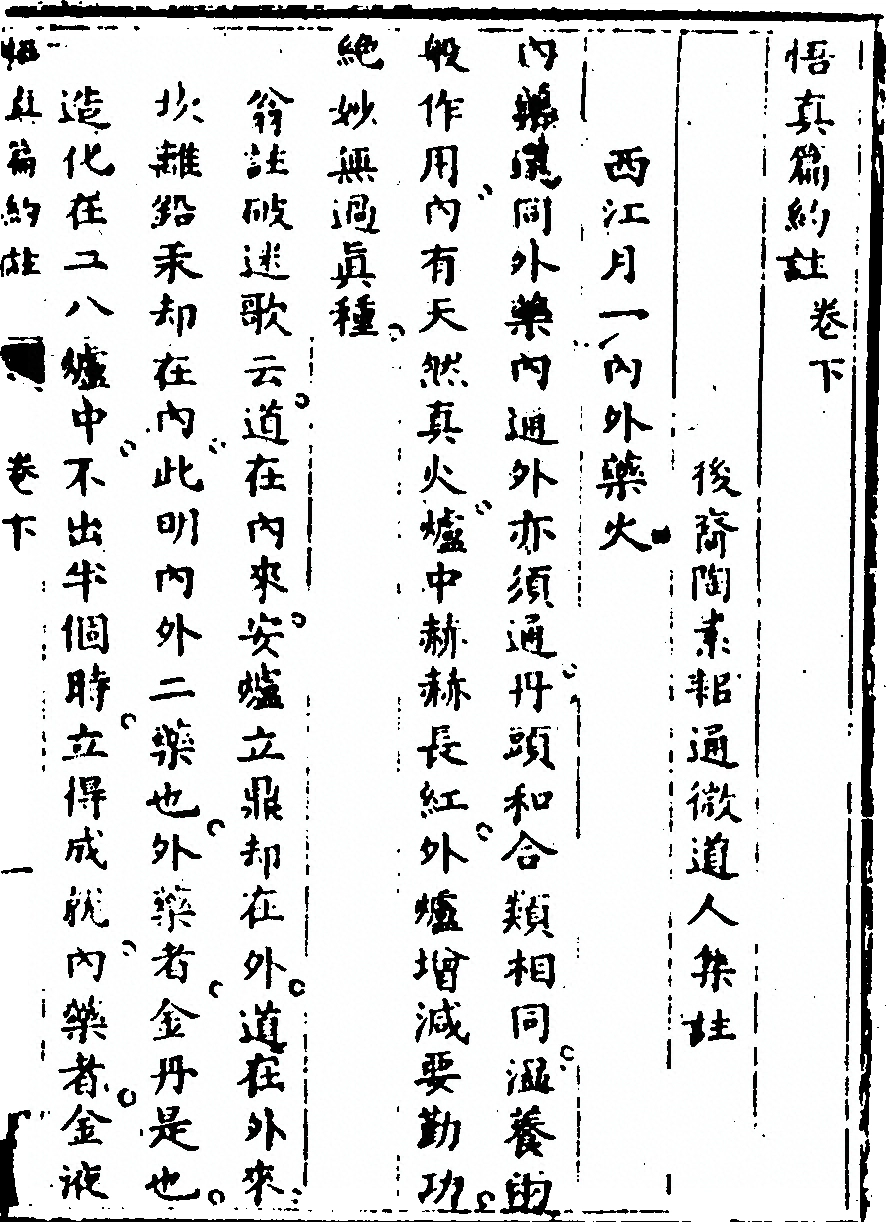 悟真篇約註卷下
後裔陶素耜通微道人集註
西江月一內外藥火
內藥還同外藥內通外亦須通丹頭和合類相同溫養兩
般作用內有天然真火爐中赫赫長紅外爐增減要勤功
絕妙無過眞種
翁註破迷歌云道在內來安爐立鼎却在外道在外來
坎離鉛汞却在內此明內外二藥也外藥者金丹是也
造化在二八爐中不出半個時立得成就內藥者金液
悟真篇約註 卷下 一